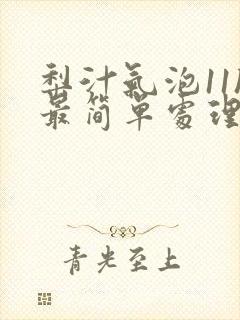 梨汁氣泡11
最简單處理
青光至上